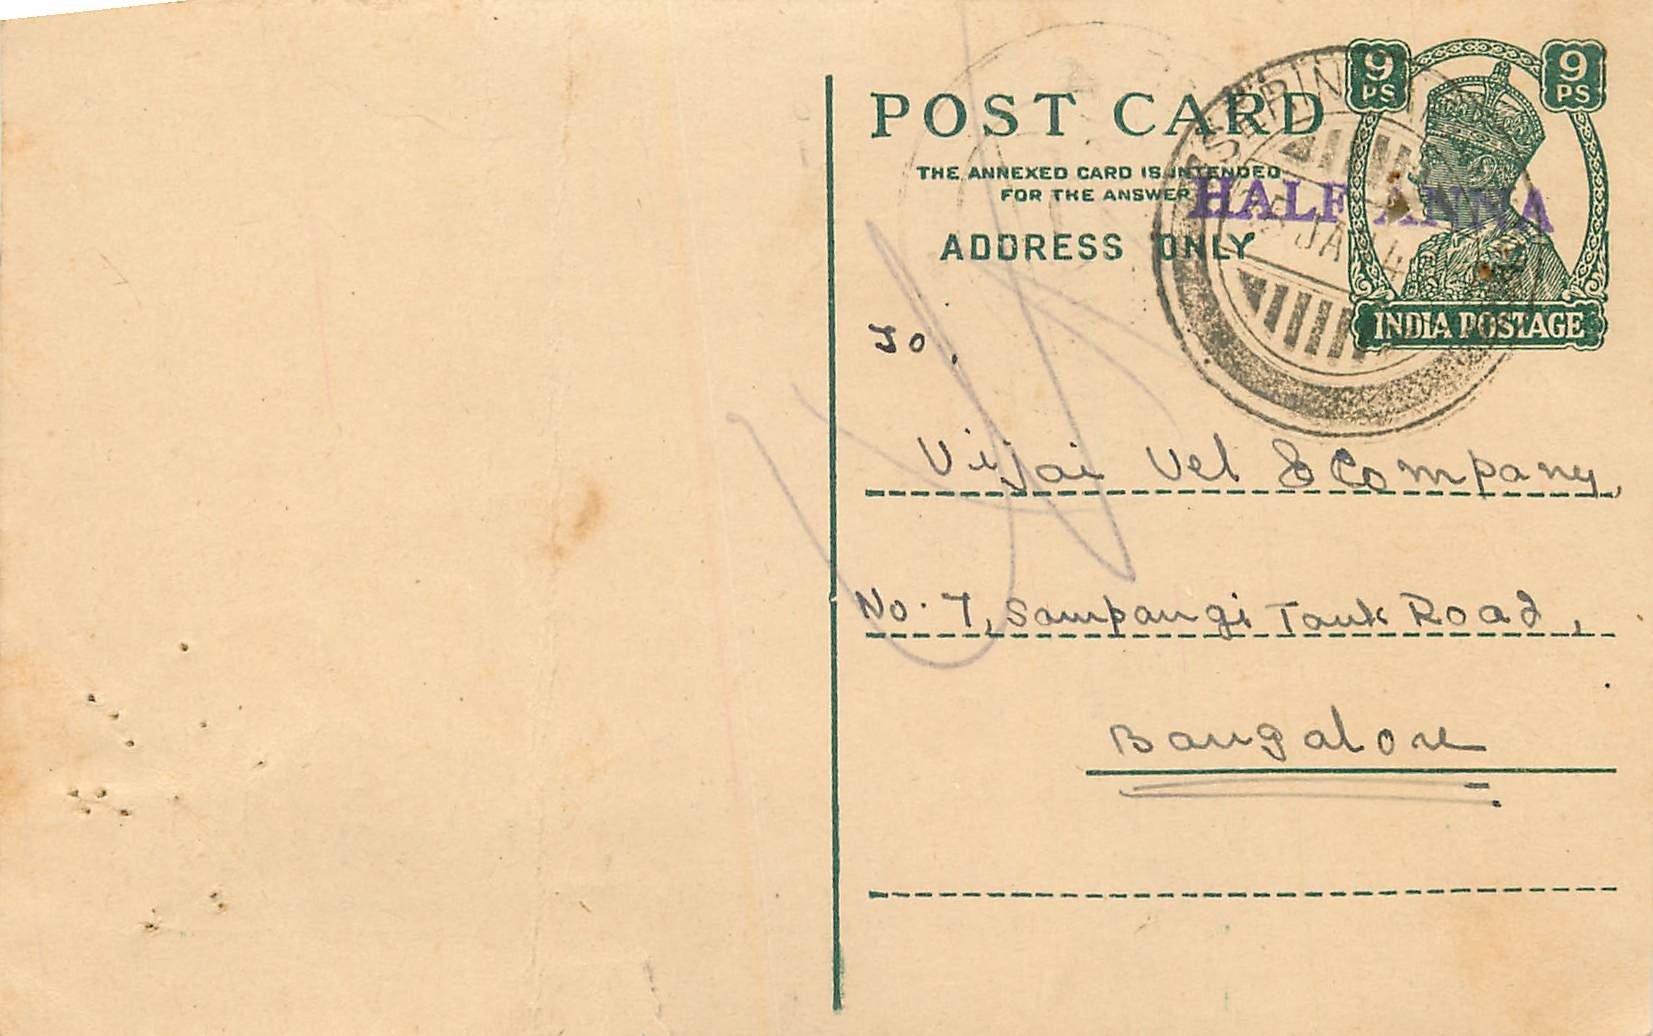 POST CARD
THE ANNEXED CARD IS INTENDED
FOR THE ANSWER
ADDRESS ONLY
9 PS
9 PS
HALF ANNA
INDIA POSTAGE
JA
To,
Vijai Vel & Company,
No. 7, Sampangi Tank Road,
Bangalore